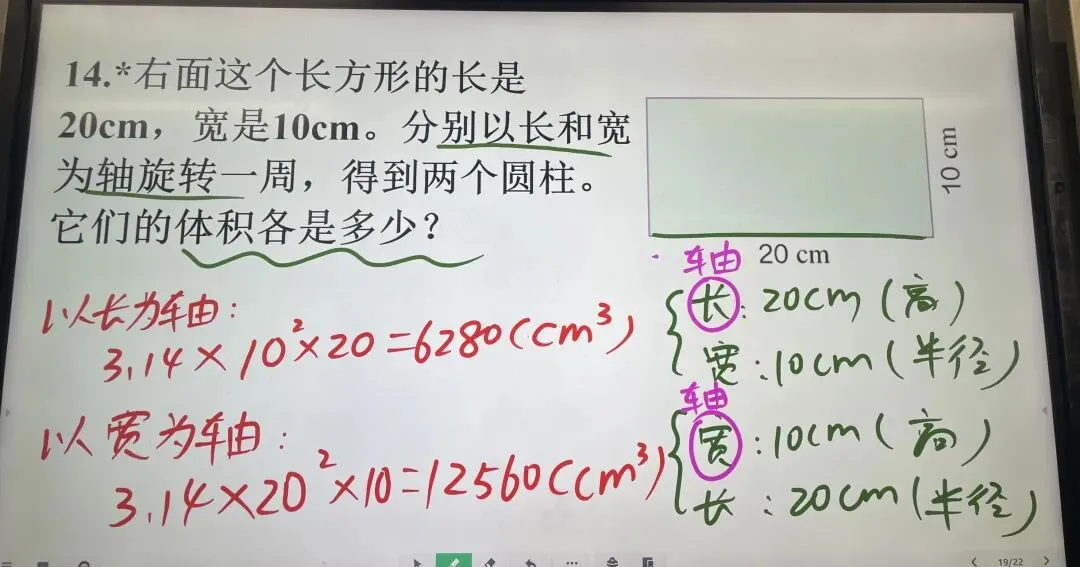 14.*右面这个长方形的长是
20cm，宽是10cm。分别以长和宽
为轴旋转一周，得到两个圆柱。
它们的体积各是多少？
10 cm
20 cm
以长为轴：
3.14×10²×20=6280(cm³)
以宽为轴：
3.14×20²×10=12560(cm³)
轴
长：20cm(高)
宽：10cm(半径)
轴
宽：10cm(高)
长：20cm(半径)
19/22